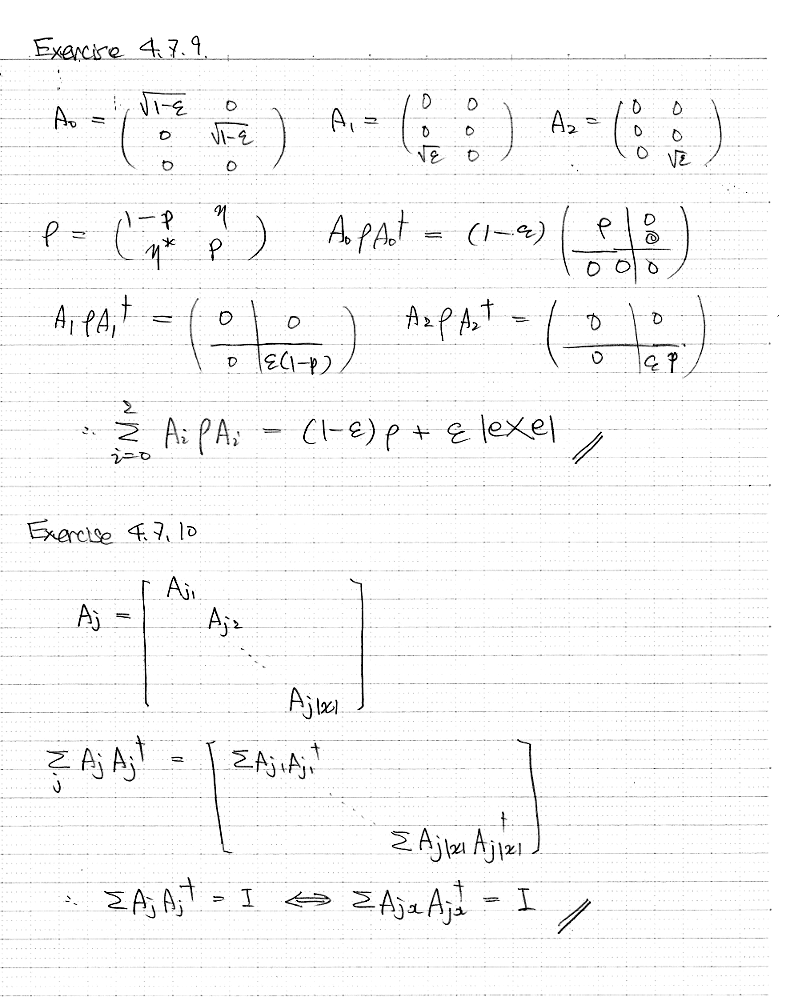 Exercise 4.7.9.
A₀ = ( √(1-ε) 0 ; 0 √(1-ε) ; 0 0 ) A₁ = ( 0 0 ; 0 0 ; √ε 0 ) A₂ = ( 0 0 ; 0 0 ; 0 √ε )
ρ = ( 1-p η ; η* p ) A₀ρA₀† = (1-ε) ( ρ | 0 0 ; 0 0 | 0 )
A₁ρA₁† = ( 0 | 0 ; 0 | ε(1-p) ) A₂ρA₂† = ( 0 | 0 ; 0 | εp )
∴ Σ_{i=0}^{2} AᵢρAᵢ = (1-ε)ρ + ε|e><e| //
Exercise 4.7.10
A_j = [ A_{j1} A_{j2} ⋱ A_{j|x|} ]
Σ_j A_j A_j† = [ ΣA_{j1}A_{j1}† ⋱ ΣA_{j|x|}A_{j|x|}† ]
∴ ΣA_jA_j† = I ⇔ ΣA_{jx}A_{jx}† = I //